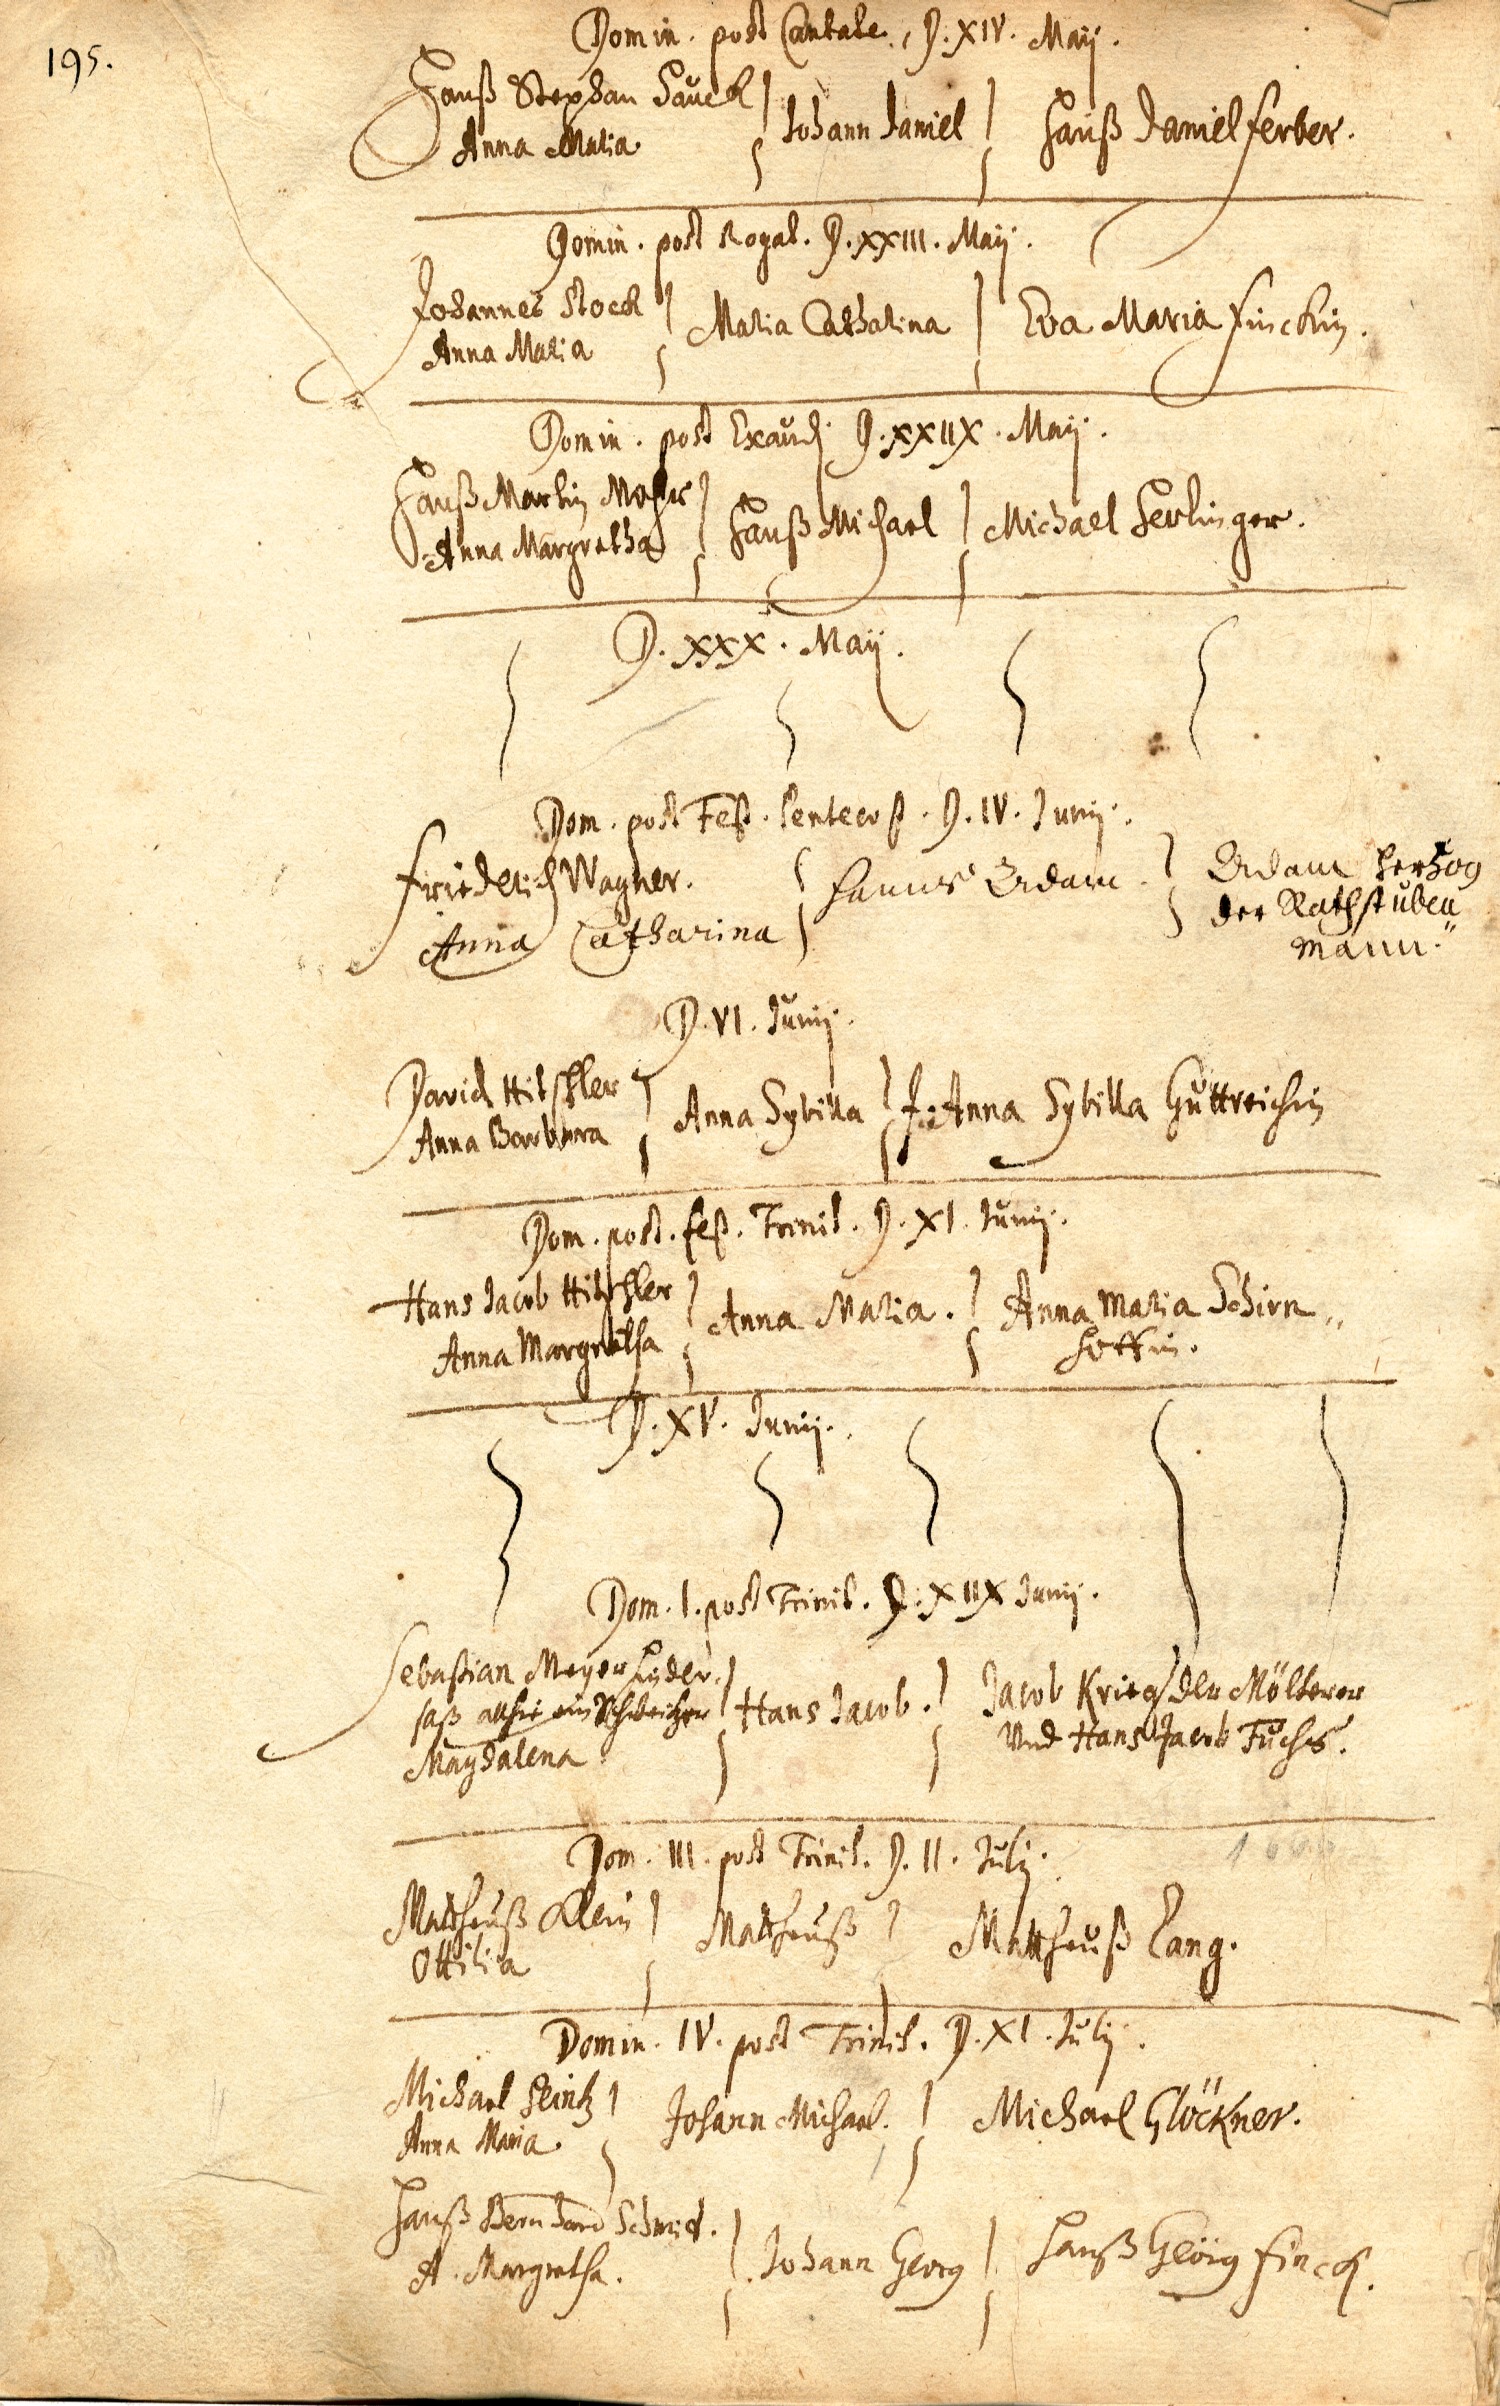 195.
Domin. post Cantate. D. XIV. Maij.
Hanß Stephan Hauck
Anna Maria
Johann Daniel
Hanß Daniel Ferber.
Domin. post Rogat. D. XXIII. Maij.
Johannes Stock
Anna Maria
Maria Catharina
Eva Maria Finckin.
Domin. post Exaudi D. XXIIX. Maij.
Hanß Martin Moser
Anna Margretha
Hanß Michael
Michael Herlinger.
D. XXX. Maij.
Dom. post Fest. Pentecost. D. IV. Junij.
Friederich Wagner.
Anna Catharina
Hanns Adam
Adam Hertzog
der Rathstuben
mann."
D. VI. Junij.
David Hitschler
Anna Barbara
Anna Sybilla
J. Anna Sybilla Guttreichin
Dom. post. fest. Trinit. D. XI. Junij.
Hans Jacob Hitschler
Anna Margretha
Anna Maria.
Anna Maria Schirn
D. XV. Junij.
Dom. I. post Trinit. D. XIIX Junij.
Sebastian Meyer Hinder.
saß allhie ein Schweitzer
Magdalena
Hans Jacob.
Jacob Krieg der Mölterer
Und Hans Jacob Fuchs.
Dom. III. post Trinit. D. II. Julij.
Mattheuß Klein
Ottilia
Mattheuß
Mattheuß Lang.
Domin. IV. post Trinit. D. XI. Julij.
Michael Heintz
Anna Maria.
Johann Michael.
Michael Glöckner.
Hanß Bernhard Schmid.
A. Margretha.
Johann Georg
Hanß Geörg Finck.